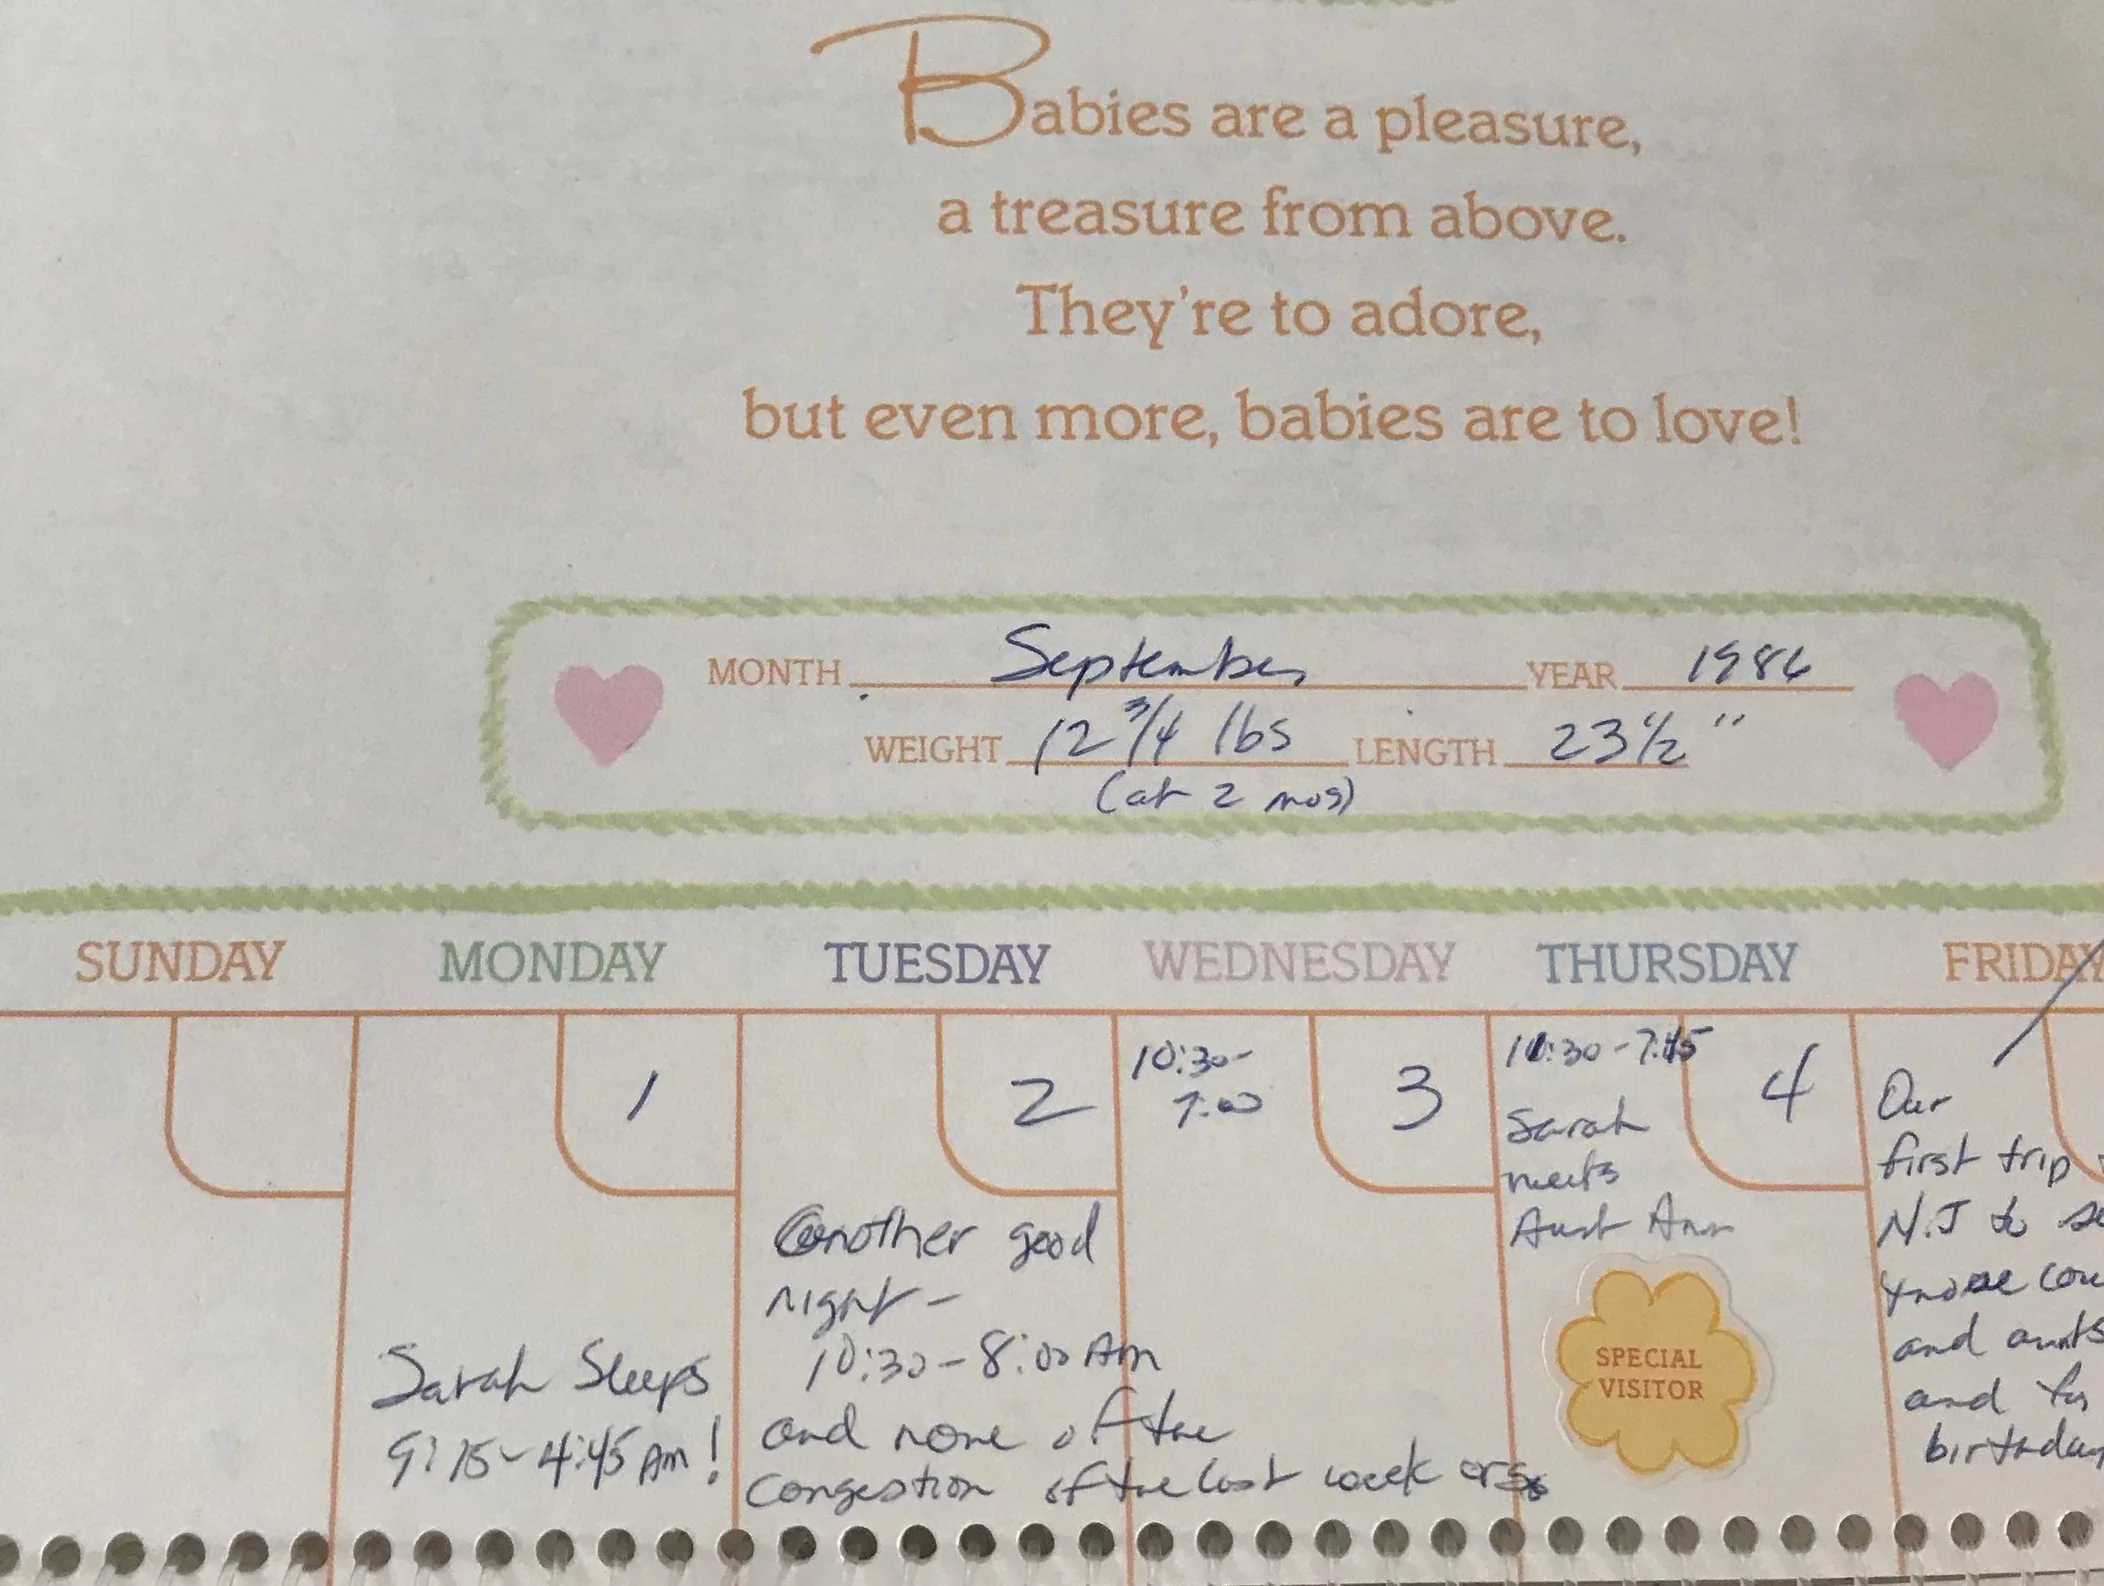 Babies are a pleasure,
a treasure from above.
They're to adore,
but even more, babies are to love!
MONTH September YEAR 1986
WEIGHT 12 3/4 lbs LENGTH 23 1/2 "
(at 2 mos)
SUNDAY MONDAY TUESDAY WEDNESDAY THURSDAY FRIDAY
1
Sarah Sleeps
9:15-4:45 Am!
2
another good
night -
10:30-8:00 Am
and none of the
congestion of the last week or so
3
10:30-
7:00
4
10:30-7:45
Sarah
meets
Aunt Ann
SPECIAL
VISITOR
Our
first trip
N.J to
those
and aunts
and for
birthday